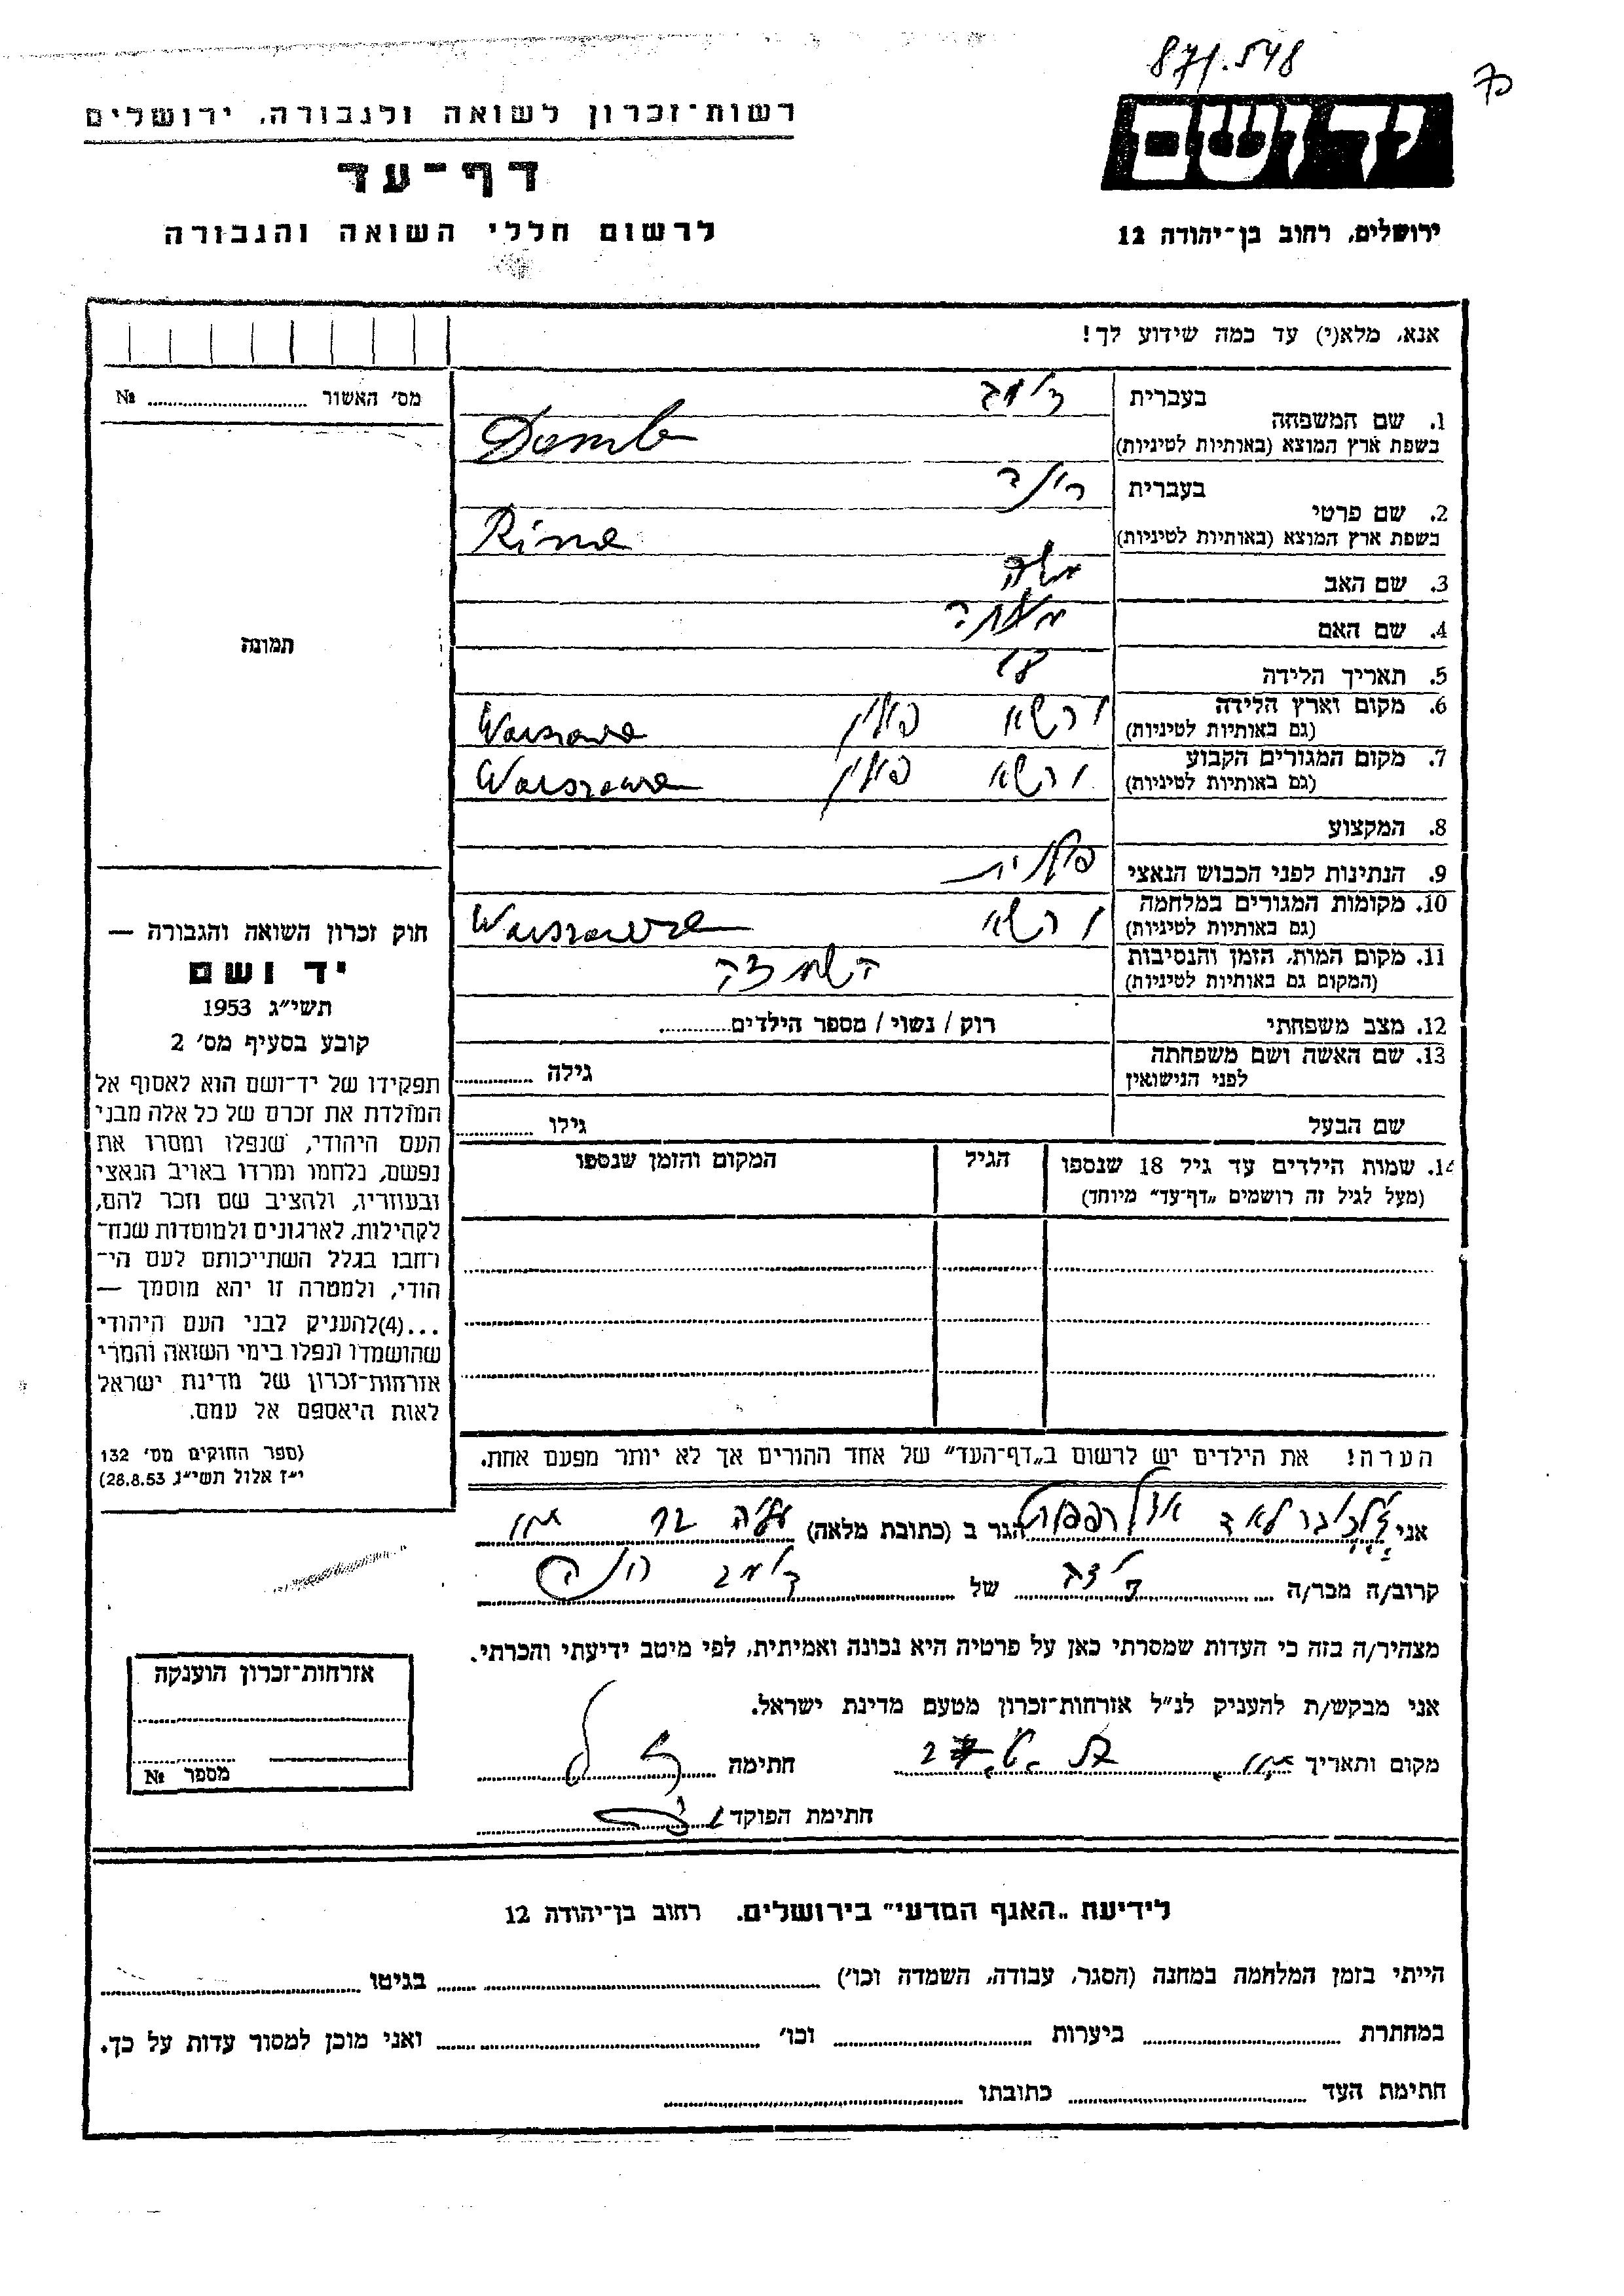 871.548
רשות־זכרון לשואה ולגבורה, ירושלים
דף־עד
לרשום חללי השואה והגבורה
יד ושם
ירושלים, רחוב בן־יהודה 12
אנא, מלא(י) עד כמה שידוע לך!
מס׳ האשור № 
תמונה
1. שם המשפחה בעברית דומב
בשפת ארץ המוצא (באותיות לטיניות) Domb
2. שם פרטי בעברית רינה
בשפת ארץ המוצא (באותיות לטיניות) Rina
3. שם האב משה
4. שם האם
5. תאריך הלידה 18
6. מקום וארץ הלידה (גם באותיות לטיניות) ורשא פולין Warszawa
7. מקום המגורים הקבוע (גם באותיות לטיניות) ורשא פולין Warszawa
8. המקצוע
9. הנתינות לפני הכבוש הנאצי פולנית
10. מקומות המגורים במלחמה (גם באותיות לטיניות) ורשא Warszawa
11. מקום המות, הזמן והנסיבות (המקום גם באותיות לטיניות) השמדה
12. מצב משפחתי רוק / נשוי / מספר הילדים
13. שם האשה ושם משפחתה לפני הנישואין גילה
שם הבעל גילו
14. שמות הילדים עד גיל 18 שנספו (מעל לגיל זה רושמים „דף־עד״ מיוחד) הגיל המקום והזמן שנספו
הערה! את הילדים יש לרשום ב„דף־העד״ של אחד ההורים אך לא יותר מפעם אחת.
חוק זכרון השואה והגבורה —
יד ושם
תשי״ג 1953
קובע בסעיף מס׳ 2
תפקידו של יד־ושם הוא לאסוף אל
המולדת את זכרם של כל אלה מבני
העם היהודי, שנפלו ומסרו את
נפשם, נלחמו ומרדו באויב הנאצי
ובעוזריו, ולהציב שם וזכר להם,
לקהילות, לארגונים ולמוסדות שנח־
רבו בגלל השתייכותם לעם הי־
הודי, ולמטרה זו יהא מוסמך —
...(4)להעניק לבני העם היהודי
שהושמדו ונפלו בימי השואה והמרי
אזרחות־זכרון של מדינת ישראל
לאות היאספם אל עמם.
(ספר החוקים מס׳ 132
י״ז אלול תשי״ג 28.8.53)
אני זילברגלאד רפפורט הגר ב (כתובת מלאה)
קרוב/ה מכר/ה של דומב רינה
מצהיר/ה בזה כי העדות שמסרתי כאן על פרטיה היא נכונה ואמיתית, לפי מיטב ידיעתי והכרתי.
אני מבקש/ת להעניק לנ״ל אזרחות־זכרון מטעם מדינת ישראל.
מקום ותאריך חתימה
חתימת הפוקד
אזרחות־זכרון הוענקה
מספר №
לידיעת „האגף המדעי״ בירושלים, רחוב בן־יהודה 12
הייתי בזמן המלחמה במחנה (הסגר, עבודה, השמדה וכו׳) בגיטו
במחתרת ביערות וכו׳ ואני מוכן למסור עדות על כך.
חתימת העד כתובתו